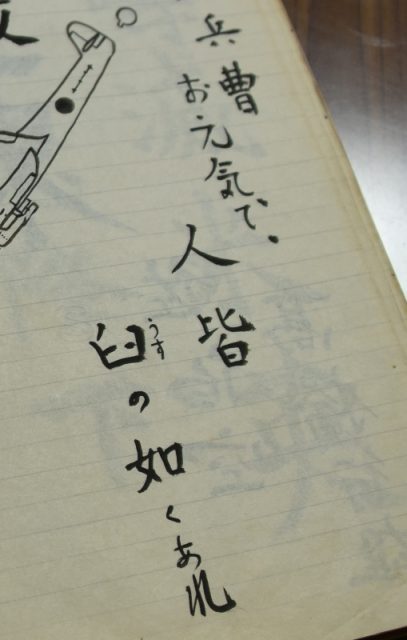 兵曹
お元気で。
人皆
うす
臼の如くあれ